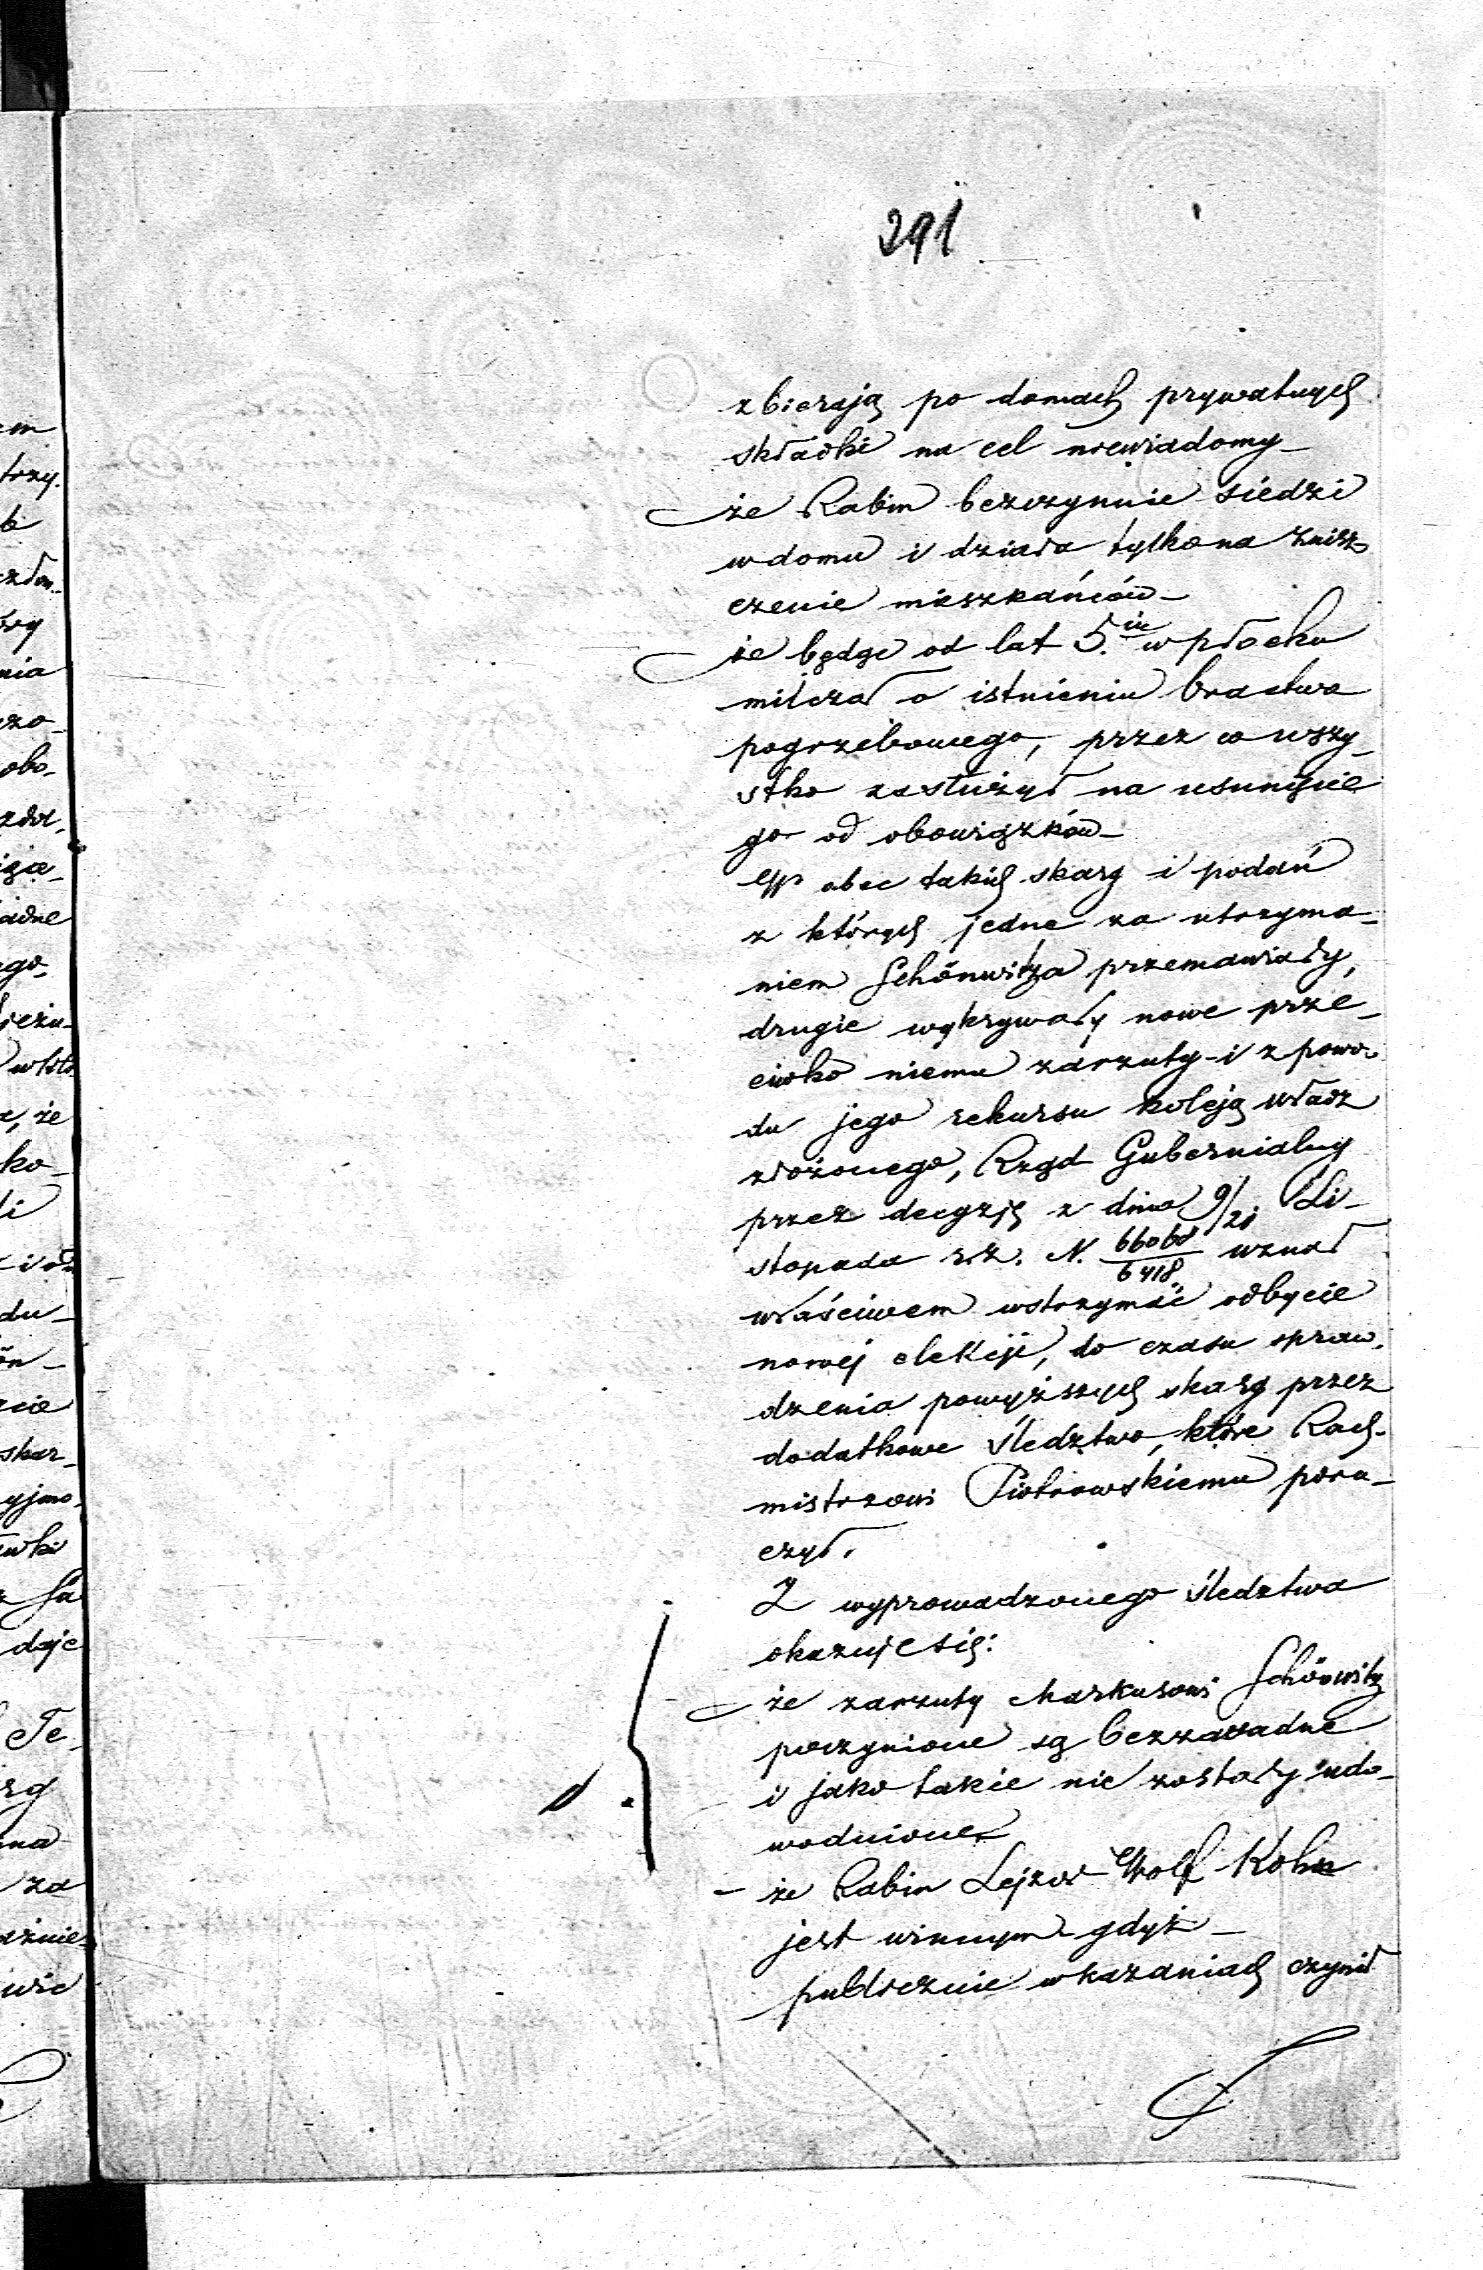 291
zbierają po domach prywatnych
składki na cel niewiadomy_
że Rabin bezczynnie siedzi
w domu i działa tylko na znisz
czenie mieszkańców_
że będąc od lat 5.iu w Płocku
milczał o istnieniu bractwa
pogrzebowego, przez co wszy_
stko zasłużył na usunięcie
go od obowiązków_
Wobec takich skarg i podań
z których jedne za utrzyma_
niem Schönwitza przemawiały,
drugie wykrywały nowe prze_
ciwko niemu zarzuty i z powo
du jego rekursu koleją władz
złożonego, Rząd Gubernialny
przez decyzję z dnia 9/21 Li_
stopada r.z. N. 66060/6418 uznał
właściwem wstrzymać odbycie
nowej elekcji, do czasu spraw_
dzenia powyższych skarg przez
dodatkowe śledztwo, które Rach_
mistrzowi Piotrowskiemu poru_
czył.
Z wyprowadzonego śledztwa
okazuje się:
że zarzuty Markusowi Schönwitz
poczynione są bezzasadne
i jako takie nie zostały udo_
wodnione
- że Rabin Lejzor Wolf Kohn
jest winnym gdyż_
publicznie w kazaniach czynił
em
trzy.
b
ory
nia
czo_
obo_
ądne
ego,
a, że
ko_
li
du_
ön_
cie
skar_
yjmo_
daje
Te_
rg
na
za
wie